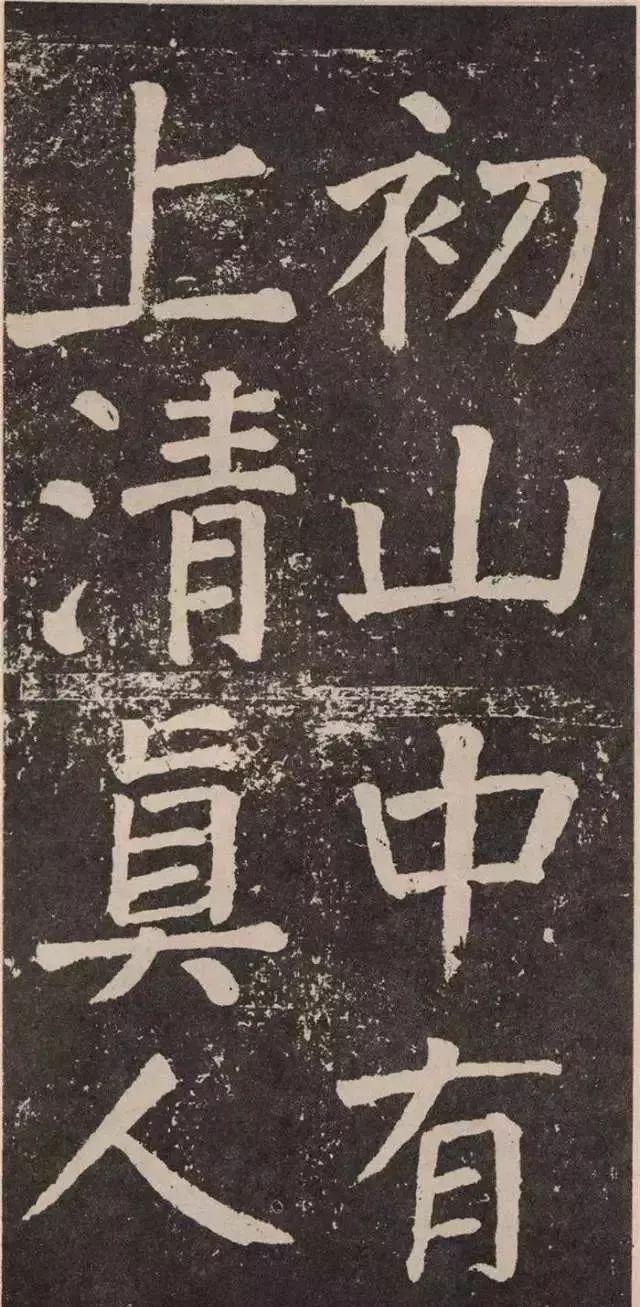 初山中有
上清真人